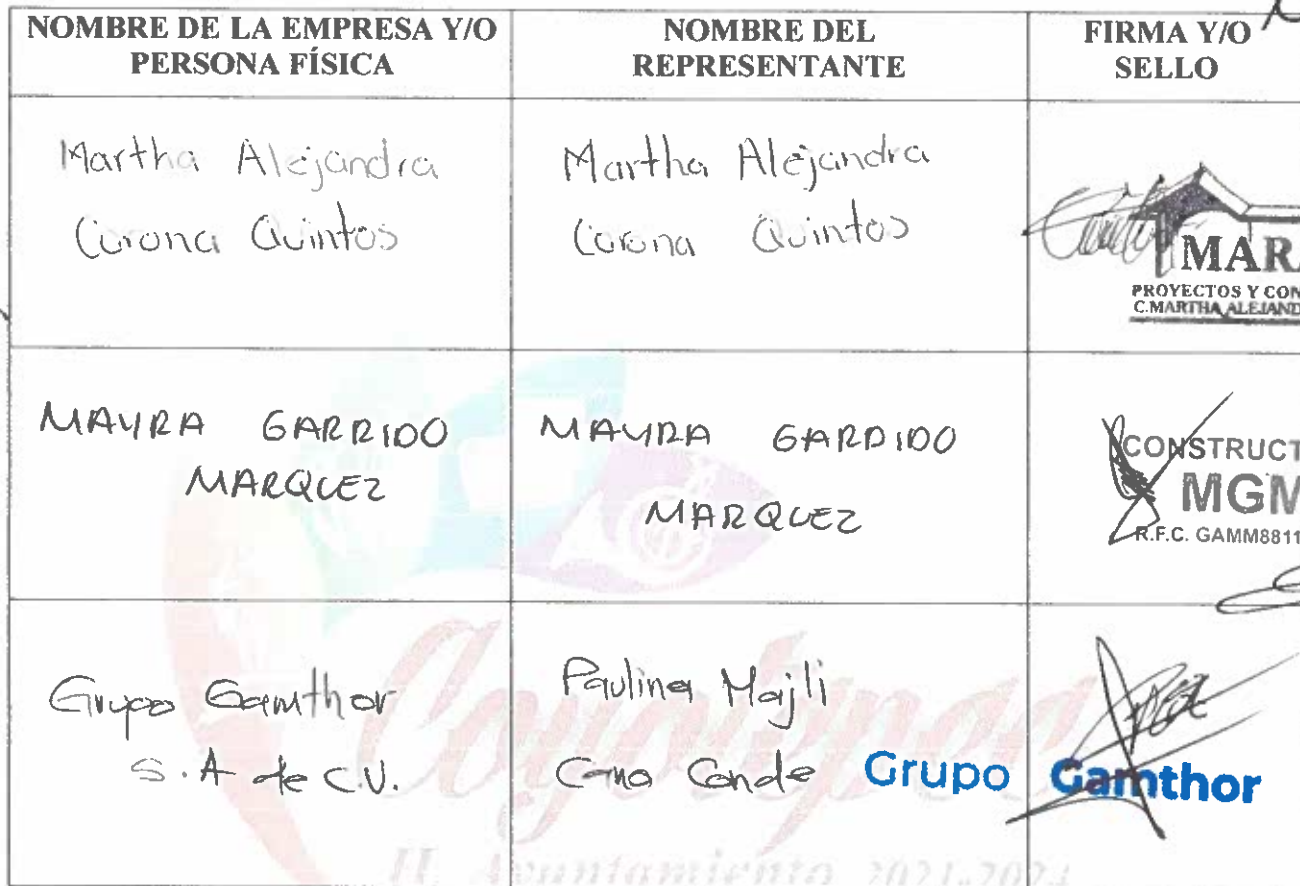 NOMBRE DE LA EMPRESA Y/O
PERSONA FÍSICA
NOMBRE DEL
REPRESENTANTE
FIRMA Y/O
SELLO
Martha Alejandra
Corona Quintos
Martha Alejandra
Corona Quintos
MARA
PROYECTOS Y CON
C.MARTHA ALEJAND
MAYRA GARRIDO
MARQUEZ
MAYRA GARRIDO
MARQUEZ
CONSTRUCT
MGM
R.F.C. GAMM8811
Grupo Gamthor
S.A de C.V.
Paulina Majli
Cano Conde
Grupo Gamthor
H. Ayuntamiento 2021-2024